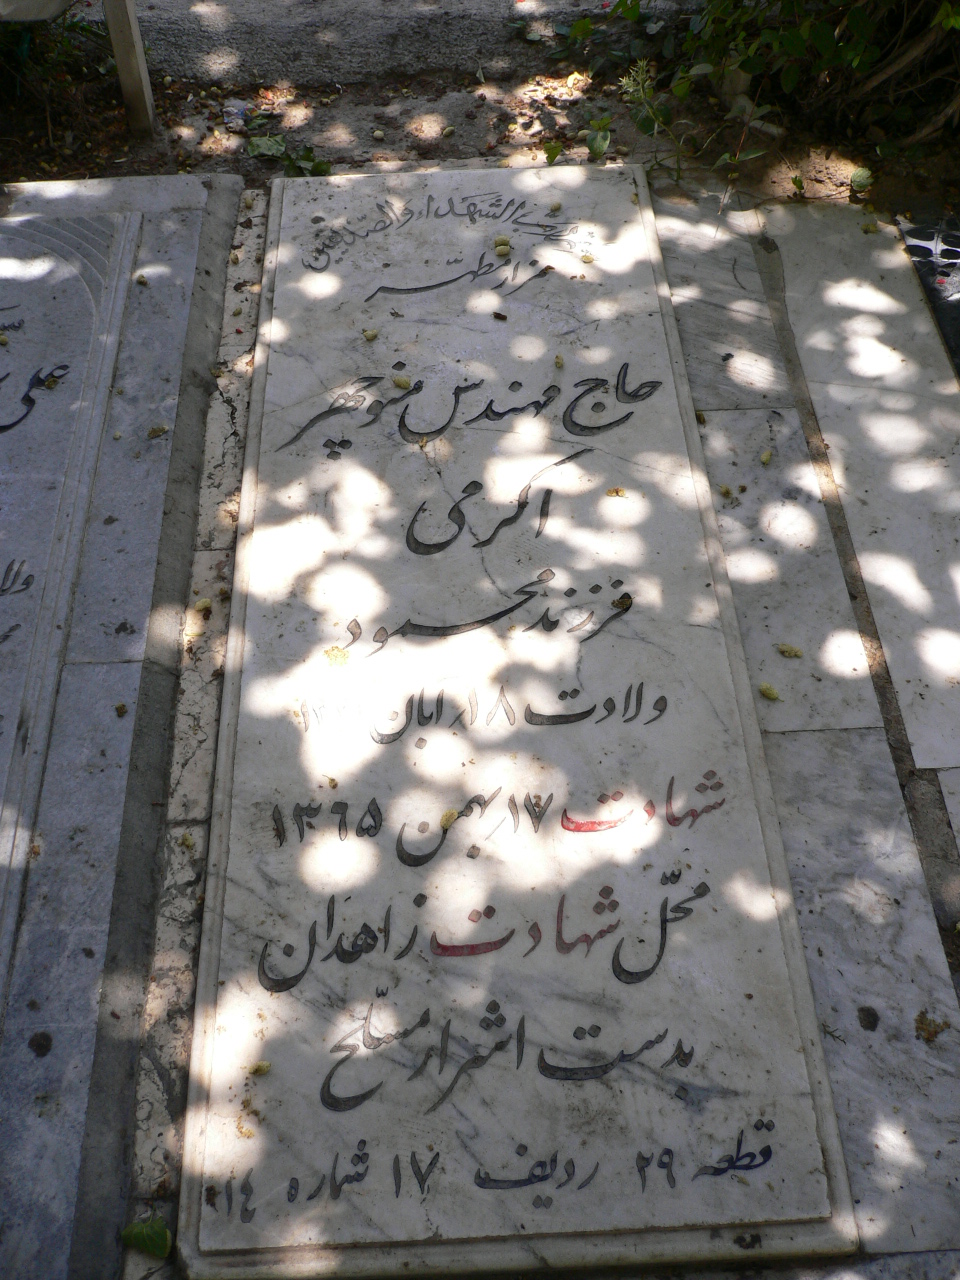 الشهداء والصدیقین
مزار مطهّر
حاج مهندس منوچهر
اکرمی
فرزند محمود
ولادت ۱۸ ابان
شهادت ۱۷ بهمن ۱۳۶۵
محلّ شهادت زاهدان
بدست اشرار مسلّح
قطعه ۲۹ ردیف ۱۷ شماره ۱۴
علی